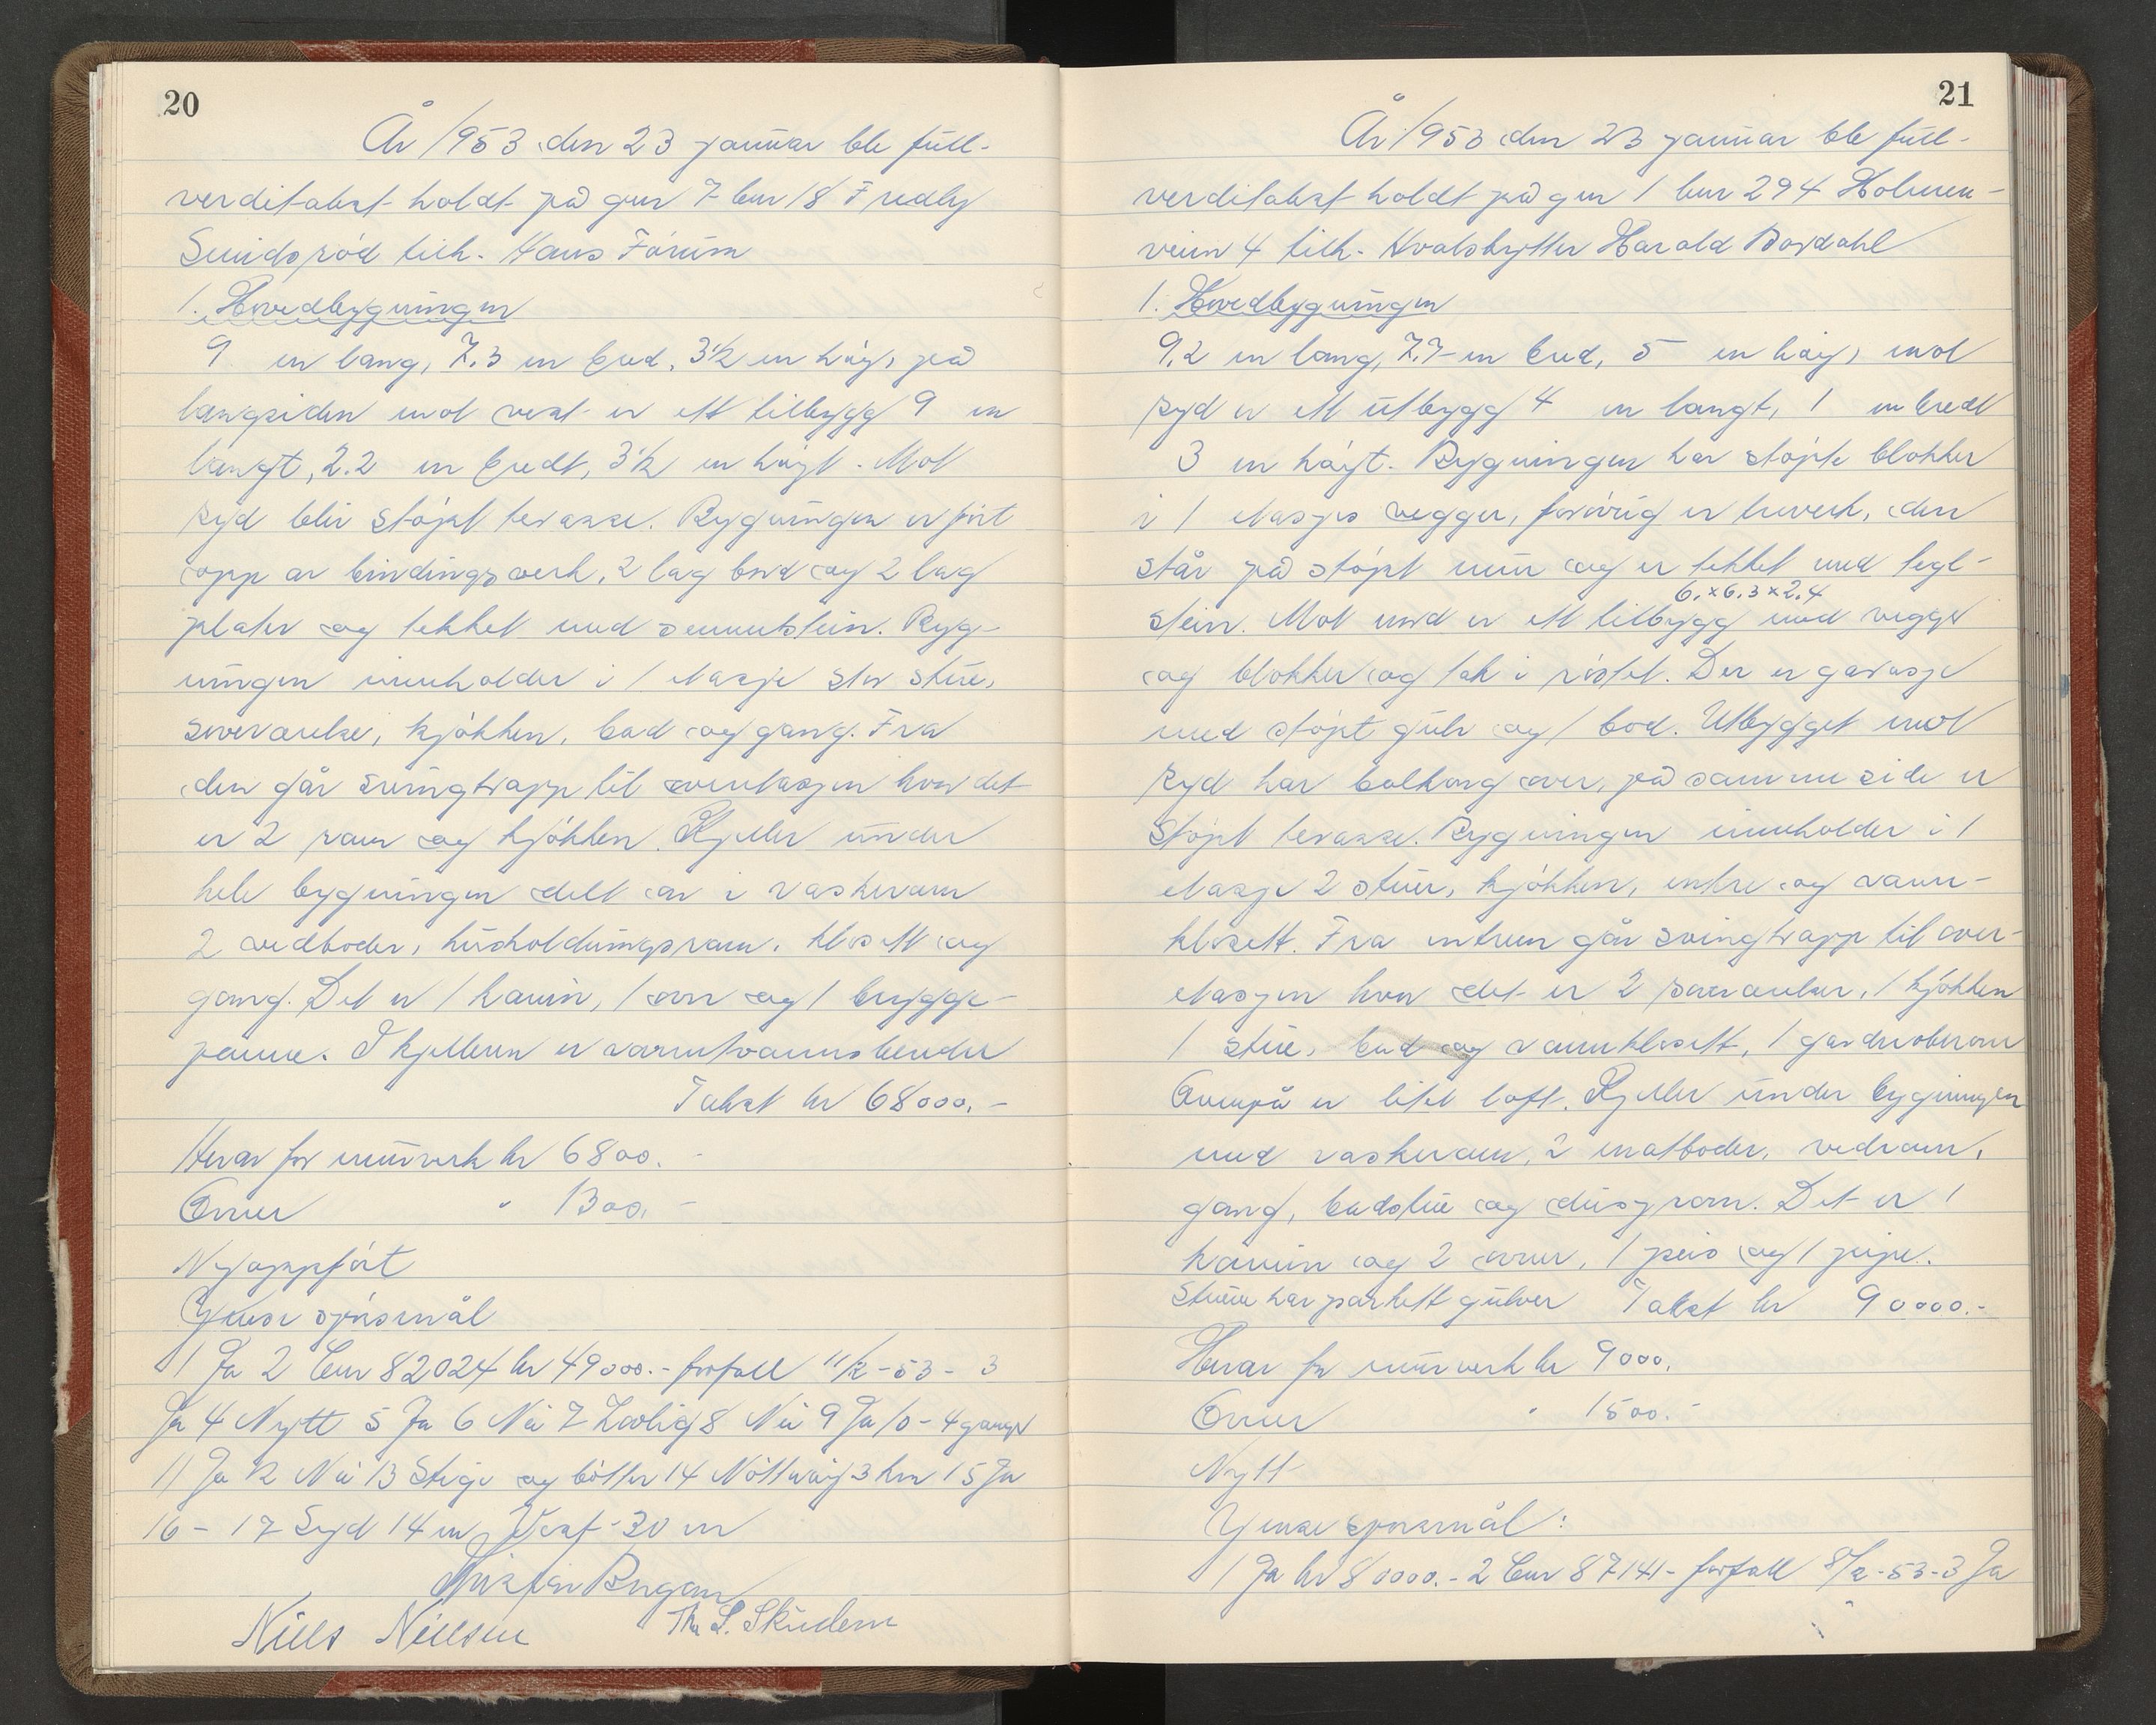 20
År 1953 den 23 januar ble full-
verditakst holdt på gnr 7 bnr 18 Fredly
Smidsrød tilh. Hans Fårum
1. Hovedbygningen
9 m lang, 7.3 m bred, 3½ m høy, på
langsiden mot vest er ett tilbygg 9 m
langt, 2.2 m bredt, 3½ m høyt. Mot
syd blir støpt terasse. Bygningen er ført
opp av bindingsverk, 2 lag bord og 2 lag
plater og tekket med sementstein. Byg-
ningen inneholder i 1 etasje stor stue,
soverærelse, kjøkken, bad og gang. Fra
den går svingtrapp til overetasjen hvor det
er 2 rom og kjøkken. Kjeller under
hele bygningen delt av i vaskerom
2 vedboder, husholdningsrom, klosett og
gang. Det er 1 kamin, 1 ovn og 1 brygge-
panne. I kjelleren er varmtvannsbereder
Takst kr 68000.-
Herav for murverk kr 6800.-
Ovner " 1300.-
Nyoppført
Ymse spørsmål
1 Ja 2 bnr 82024 kr 49000.- forfall 11/2-53- 3
Ja 4 Nytt 5 Ja 6 Nei 7 Zoolig 8 Nei 9 Ja 10 - 4 ganger
11 Ja 12 Nei 13 Stige og bøtter 14 Nøtterøy 3 km 15 Ja
16 - 17 Syd 14 m, Vest 30 m
Niels Nielsen Th. L. Skudem
21
År 1953 den 23 januar ble full-
verditakst holdt på gnr 1 bnr 294 Holmen-
veien 4 tilh. Hvalskytter Harald Bordahl
1. Hovedbygningen
9,2 m lang, 7.7 m bred, 5 m høy, mot
syd er ett utbygg 4 m langt, 1 m bredt
3 m høyt. Bygningen har støpte blokker
i 1 etasjes vegger, forøvrig er treverk, den
står på støpt mur og er tekket med tegl-
6.×6.3×2.4
stein. Mot nord er ett tilbygg med vegger
og blokker og tak i røstet. Der er garasje
med støpt gulv og 1 bod. Utbygget mot
syd har balkong over, på samme side er
støpt terasse. Bygningen inneholder i 1
etasje 2 stuer, kjøkken, entre og vann-
klosett. Fra entreen går svingtrapp til over-
etasjen hvor det er 2 soverærelser, 1 kjøkken
1 stue, bad og vannklosett, 1 garderoberom
Ovenpå er litet loft. Kjeller under bygningen
med vaskerom, 2 matboder, vedrom,
gang, badstue og dusjrom. Det er 1
kamin og 2 ovner, 1 peis og 1 pipe.
Stuene har parkett gulver Takst kr 90000.-
Herav for murverk kr 9000.
Ovner " 1500.-
Nytt
Ymse spørsmål:
1 Ja kr 80000.- 2 bnr 87141- forfall 8/2-53- 3 Ja